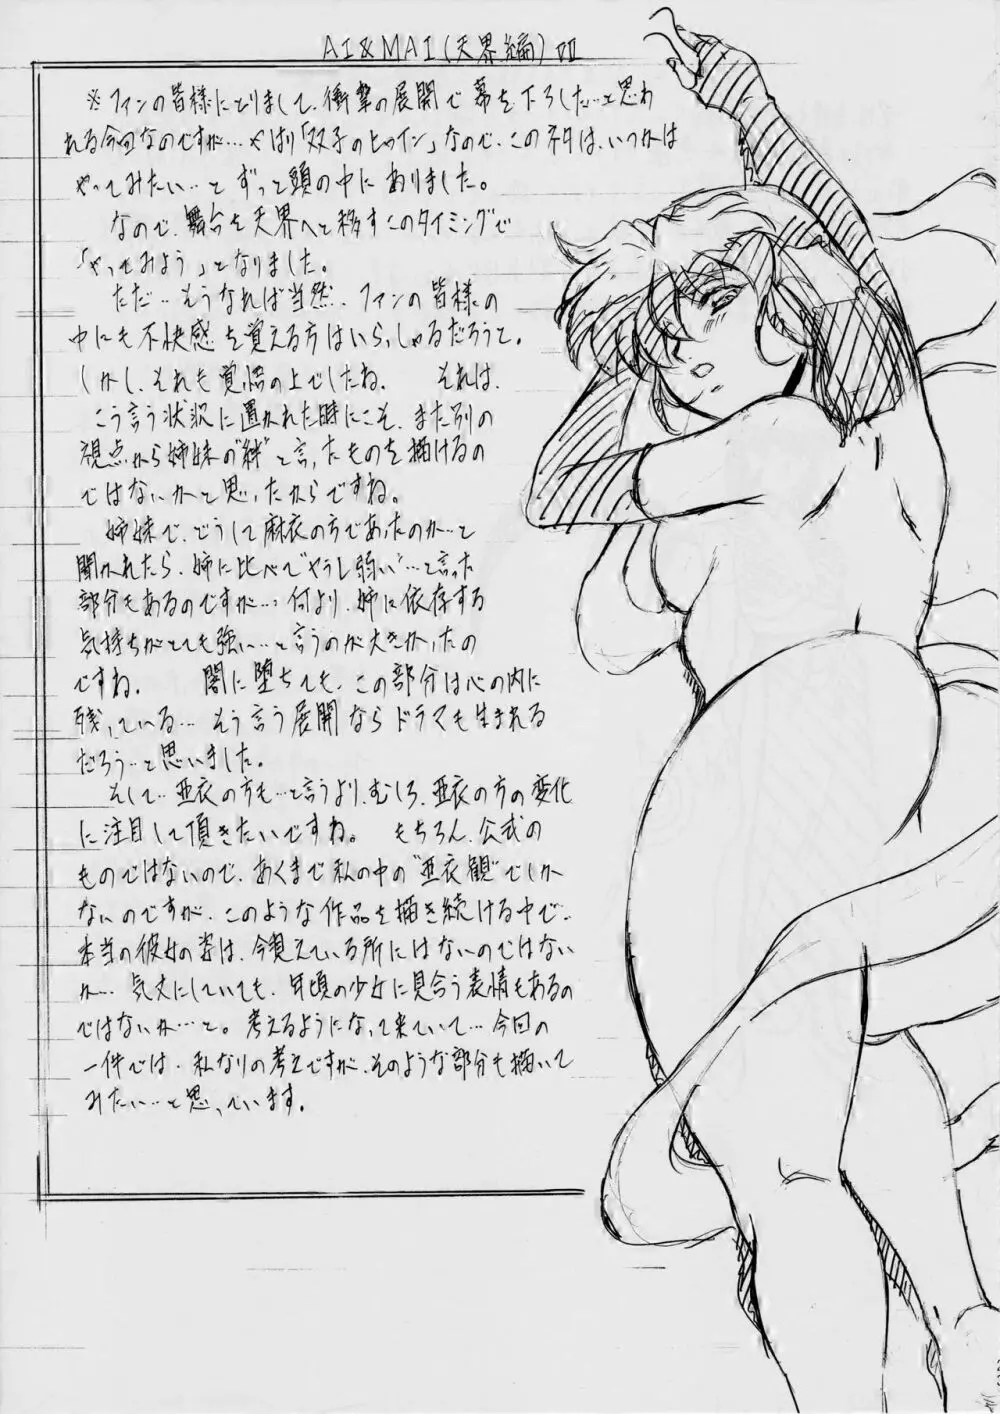 AI&MAI(天界編)VII
※ファンの皆様にとりまして、衝撃の展開で幕を下ろした…と思わ
れる今回なのですが…やはり「双子のヒロイン」なので、このネタは、いつかは
やってみたい…とずっと頭の中にありました。
なので、舞台を天界へと移すこのタイミングで
「やってみよう」となりました。
ただ…そうなれば当然、ファンの皆様の
中にも不快感を覚える方はいらっしゃるだろうと。
しかし、それも覚悟の上でしたね。 それは、
こう言う状況に置かれた時にこそ、また別の
視点から姉妹の"絆"と言ったものを描けるの
ではないかと思ったからですね。
姉妹で、どうして麻衣の方であったのか…と
聞かれたら、姉に比べて"ヤラレ弱い"…と言った
部分もあるのですが…何より、姉に依存する
気持ちがとても強い…と言うのが大きかったの
ですね。 闇に堕ちても、この部分は心の内に
残っている…そう言う展開ならドラマも生まれる
だろう…と思いました。
そして…亜衣の方も…と言うより、むしろ、亜衣の方の変化
に注目して頂きたいですね。 もちろん、公式の
ものではないので、あくまで私の中の"亜衣観"でしか
ないのですが、このような作品を描き続ける中で、
本当の彼女の姿は、今見えている所にはないのではない
か…気丈にしていても、年頃の少女に見合う表情もあるの
ではないか…と。考えるようになって来ていて…今回の
一件では、私なりの考えですが、そのような部分も描いて
みたい…と思っています。